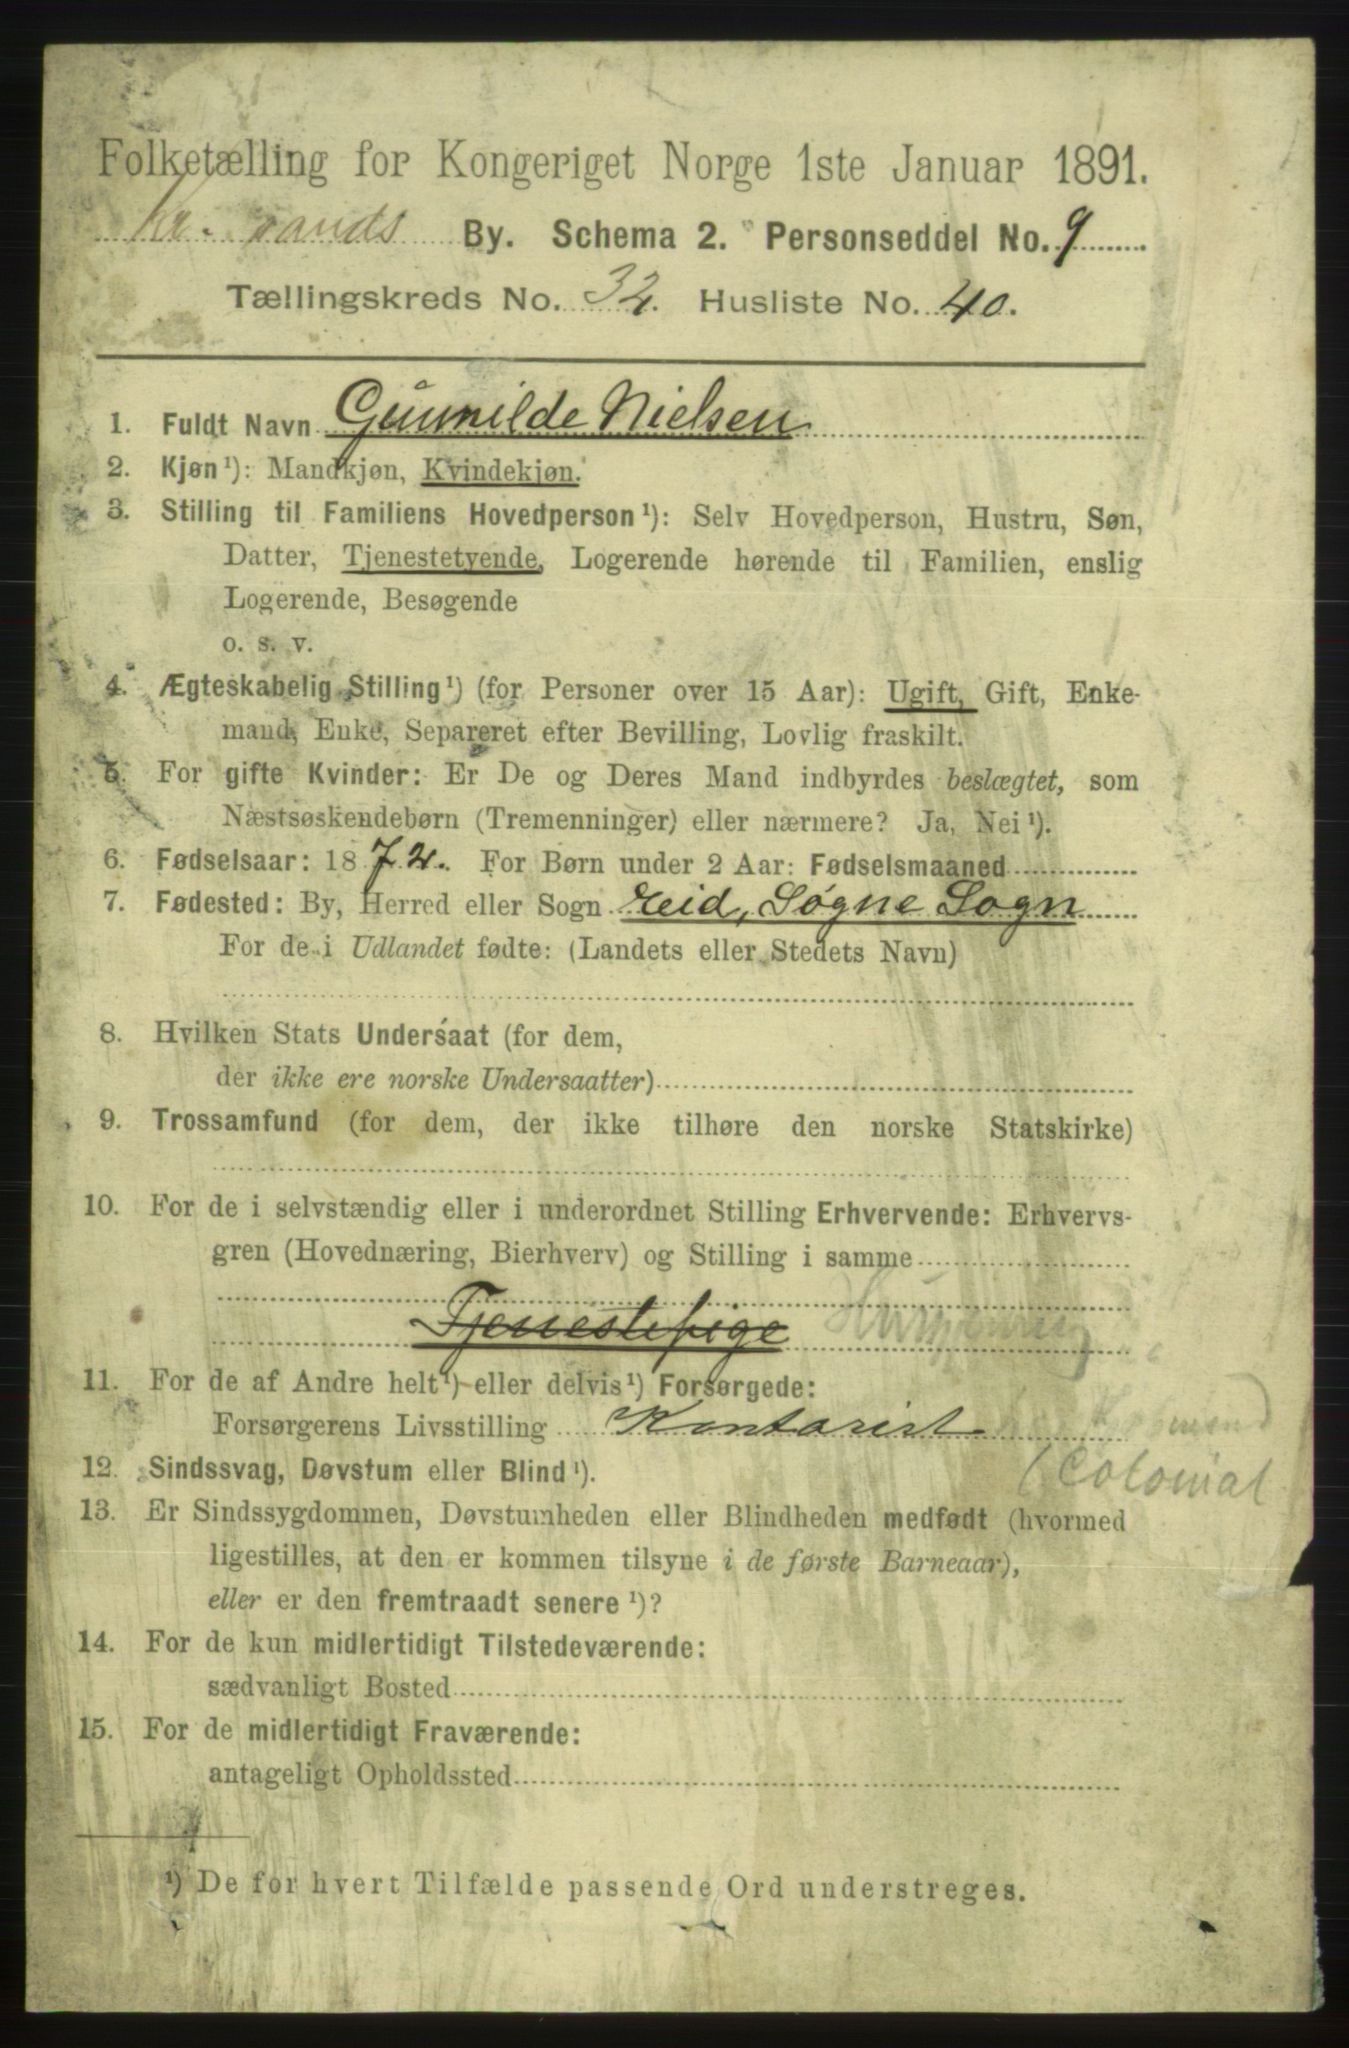 Folketælling for Kongeriget Norge 1ste Januar 1891.
Kr. sands By. Schema 2. Personseddel No. 9
Tællingskreds No. 32. Husliste No. 40.
1. Fuldt Navn Gunnilde Nielsen
2. Kjøn¹): Mandkjøn, Kvindekjøn.
3. Stilling til Familiens Hovedperson¹): Selv Hovedperson, Hustru, Søn,
Datter, Tjenestetyende, Logerende hørende til Familien, enslig
Logerende, Besøgende
o. s. v.
4. Ægteskabelig Stilling¹) (for Personer over 15 Aar): Ugift, Gift, Enke-
mand, Enke, Separeret efter Bevilling, Lovlig fraskilt.
5. For gifte Kvinder: Er De og Deres Mand indbyrdes beslægtet, som
Næstsøskendebørn (Tremenninger) eller nærmere? Ja, Nei¹).
6. Fødselsaar: 1872. For Børn under 2 Aar: Fødselsmaaned
7. Fødested: By, Herred eller Sogn Eeid, Søgne Sogn
For de i Udlandet fødte: (Landets eller Stedets Navn)
8. Hvilken Stats Undersaat (for dem,
der ikke ere norske Undersaatter)
9. Trossamfund (for dem, der ikke tilhøre den norske Statskirke)
10. For de i selvstændig eller i underordnet Stilling Erhvervende: Erhvervs-
gren (Hovednæring, Bierhverv) og Stilling i samme
Tjenestepige
11. For de af Andre helt¹) eller delvis¹) Forsørgede:
Forsørgerens Livsstilling Kontorist
(Colonial
12. Sindssvag, Døvstum eller Blind¹).
13. Er Sindssygdommen, Døvstumheden eller Blindheden medfødt (hvormed
ligestilles, at den er kommen tilsyne i de første Barneaar),
eller er den fremtraadt senere¹)?
14. For de kun midlertidigt Tilstedeværende:
sædvanligt Bosted
15. For de midlertidigt Fraværende:
antageligt Opholdssted
¹) De for hvert Tilfælde passende Ord understreges.